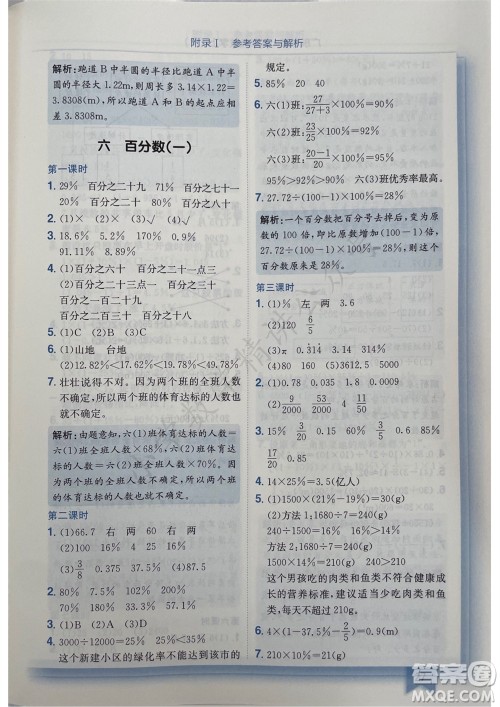 附录Ⅰ 参考答案与解析
解析:跑道 B 中半圆的半径比跑道 A 中半
圆的半径大 1.22m,所以 3.14×1.22=
3.8308(m),所以 A 和 B 的起点应相差
3.8308m。
六 百分数(一)
第一课时
1. 29% 百分之二十九 71% 百分之七十一
20% 百分之二十
2. (1)× (2)× (3)×
3. 18.6% 5.2% 170% 0.9%
91.11% 8.89%
4. (1)百分之二 百分之二十一点三
(2)百分之二十三点三 百分之五十一
百分之二百一十三 百分之十八
5. (1)C (2)B
6. (1)山地 台地
(2)12.82%<17.62%<19.78%<49.78%
7. 壮壮说得不对。因为两个班的全班人数
不确定,所以两个班的体育达标的人数
不确定。
解析:由题意知,六(1)班体育达标的人数=
六(1)班全班人数×68%,六(2)班体育达标
的人数=六(2)班全班人数×70%。因为两个
班的全班人数不确定,所以六(1)班和六(2)
班的体育达标的人数不确定。
第二课时
1. (1)66.7 右 两 (2)60 右 两
2. (1)32 100 16% (2)4 25 16%
(3)3/8 0.375 37.5% (4)87.5
3. (1)B (2)A (3)D
4. 3000÷12000=25% 25%<30%
这个新建小区的绿化率不能达到该市的
规定。
5. 85% 20 40
6. 六(1)班:27/(27+3)×100%=90%
六(2)班:(20-1)/20×100%=95%
六(3)班:(21-0)/21×100%=100%
100%>95%>90% 六(3)班优秀率最高。
7. 27.72÷(100-1)×100%=28%
解析:一个百分数把百分号去掉后,变为原
数的 100 倍,即比原数增加(100-1)倍。
27.72÷(100-1)×100%=28%,则这个
百分数原来是 28%。
第三课时
1. (1)% 左 两 3.6
(2)120 6/5
(3)π 0.314 314% 0.314
(4)80 75 3612.5 45
2. (1)0.38 0.423 0.0025 1
(2)9/50 57/2000 1/5000 6/5
3. (1)75% 30% 60% 31/100 13/50
17/20 0.85 0.15
4. 14×25%=3.5(亿人)
5. (1)1500×(21%-20%)=30(g)
(2)方法 1:1680÷7=240(g)
240÷1500=16% 16%>14%
方法 2:1680÷7=240(g)
1500×14%=210(g) 240>210
这个男孩吃的肉类和鱼类不符合健康成
长的营养标准,建议适当少吃肉类和鱼
类,每天不超过 210g。
7. 4×(1-37.5%-2/5)=0.9(m)
答案圈
MXQE.COM